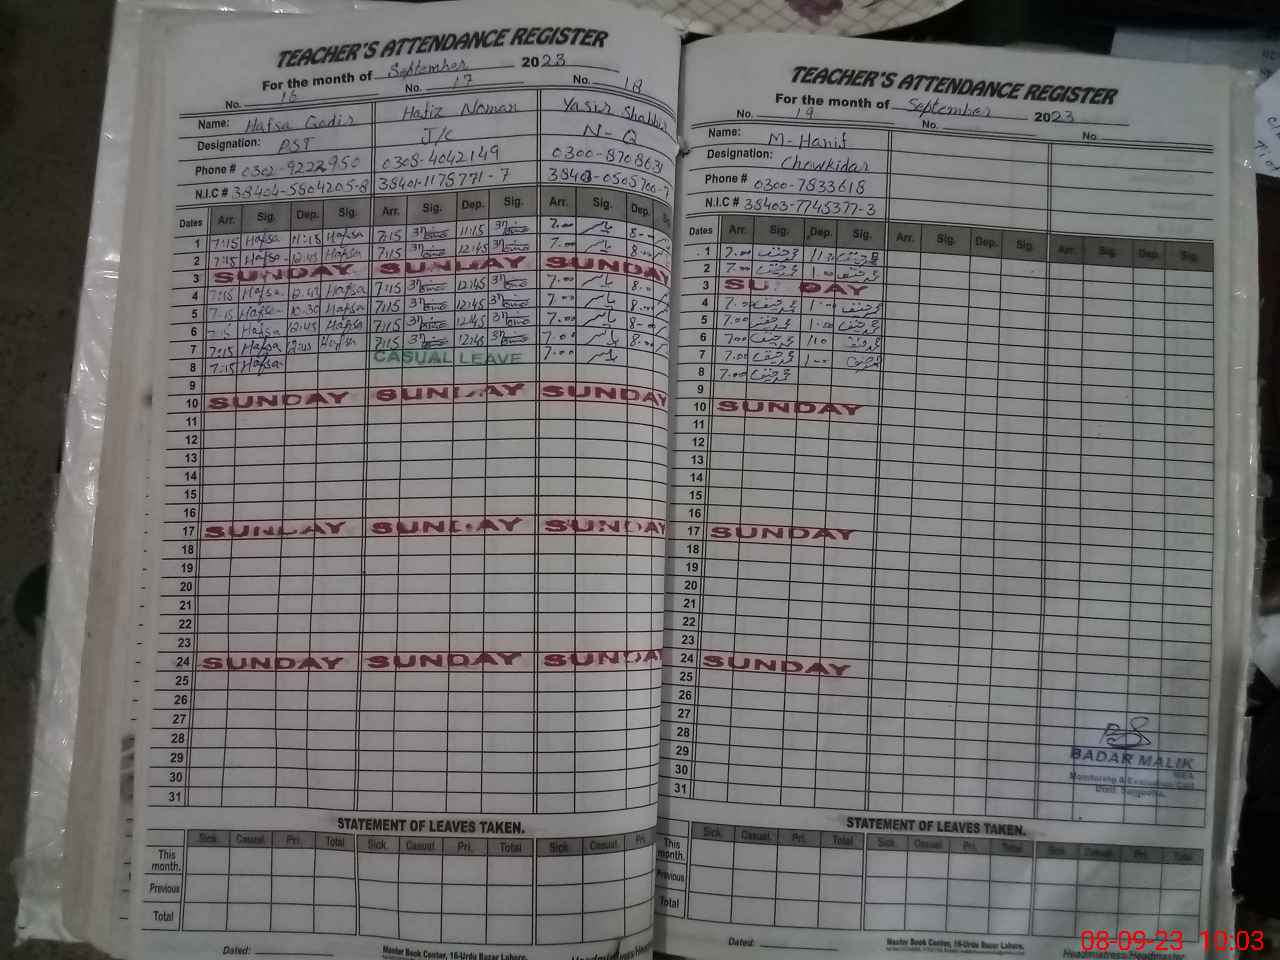 TEACHER'S ATTENDANCE REGISTER
For the month of September 2023
No. 16 No. 17 No. 18
Name: Hafsa Qadir Hafiz Noman Yasir Shabbir
Designation: PST J/C N-Q
Phone # 0302-9222950 0308-4042149 0300-8708631
N.I.C # 38404-5804205-8 38401-1175771-7 38403-0505700-7
Dates Arr. Sig. Dep. Sig. Arr. Sig. Dep. Sig. Arr. Sig. Dep.
1 7:15 Hafsa 11:15 Hafsa 7:15 11:15 7.00 یاسر 8.00
2 7:15 Hafsa 12:45 Hafsa 7:15 12:45 7.00 8.00
3 SUNDAY SUNDAY SUNDAY
4 7:15 Hafsa 12:45 Hafsa 7:15 12:45 7.00 یاسر 8.00
5 7:15 Hafsa 10:30 Hafsa 7:15 12:45 7.00 8.00
6 7:15 Hafsa 12:45 Hafsa 7:15 12:45 7.00 یاسر 8.00
7 7:15 Hafsa 12:45 Hafsa 7:15 12:45 7.00 یاسر 8.00
8 7:15 Hafsa CASUAL LEAVE 7.00 یاسر
9
10 SUNDAY SUNDAY SUNDAY
11
12
13
14
15
16
17 SUNDAY SUNDAY SUNDAY
18
19
20
21
22
23
24 SUNDAY SUNDAY SUNDAY
25
26
27
28
29
30
31
STATEMENT OF LEAVES TAKEN.
Sick. Casual. Pri. Total Sick. Casual. Pri. Total Sick. Casual. Pri.
This month.
Previous
Total
Dated:
Master Book Center, 16-Urdu Bazar Lahore.
TEACHER'S ATTENDANCE REGISTER
For the month of September 2023
No. 19 No. No.
Name: M-Hanif
Designation: Chowkidar
Phone # 0300-7833618
N.I.C # 38403-7745377-3
Dates Arr. Sig. Dep. Sig. Arr. Sig. Dep. Sig. Arr. Sig. Dep. Sig.
1 7.00 محمد حنیف محمد حنیف
2 7.00 محمد حنیف 1.00 محمد حنیف
3 SUNDAY
4 7.00 محمد حنیف 1.00 محمد حنیف
5 7.00 محمد حنیف 1.00 محمد حنیف
6 7.00 محمد حنیف 1.00 محمد حنیف
7 7.00 محمد حنیف 1.00 محمد حنیف
8 7.00 محمد حنیف
9
10 SUNDAY
11
12
13
14
15
16
17 SUNDAY
18
19
20
21
22
23
24 SUNDAY
25
26
27
28
29
30
31
BADAR MALIK
MEA
Monitoring & Evaluation Cell
Distt. Sargodha.
STATEMENT OF LEAVES TAKEN.
Sick. Casual. Pri. Total Sick. Casual. Pri. Total Sick. Casual. Pri. Total
This month.
Previous
Total
Dated:
Master Book Center, 16-Urdu Bazar Lahore.
Headmistress/Headmaster
08-09-23 10:03